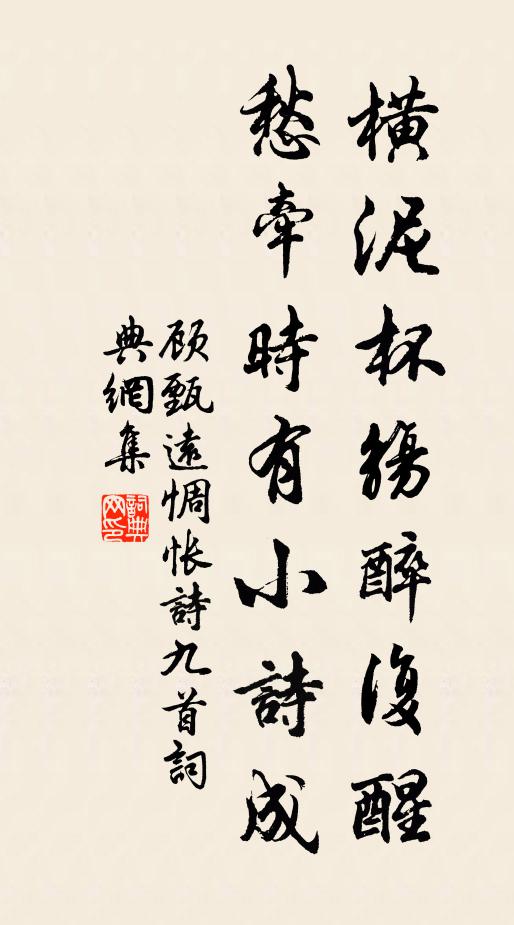 橫泥杯觴醉復醒
愁牽時有小詩成
顾甄遠惆怅詩九首詞
典網集
詞典網印